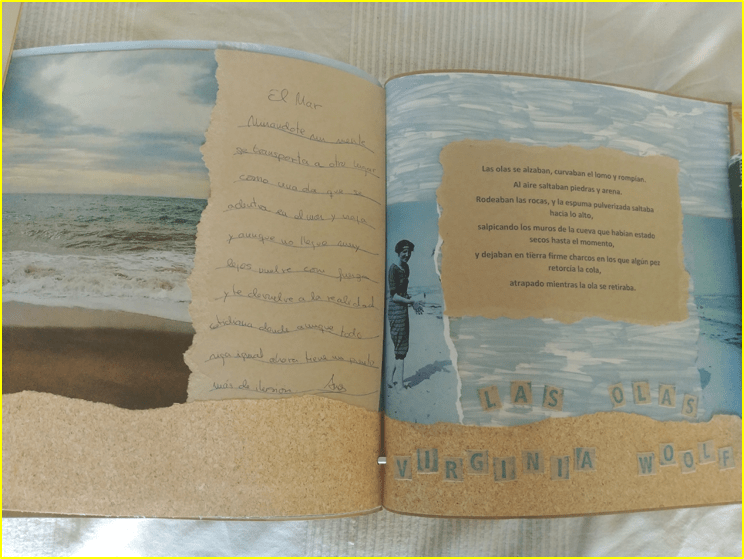 El Mar
Mirandote mi mente
se transporta a otro lugar
como una ola que se
adentra en el mar y viaja
y aunque no llegue muy
lejos, vuelve con fuerza
y te devuelve a la realidad
cotidiana donde aunque todo
sigue igual ahora tiene un punto
más de ilusion
Las olas se alzaban, curvaban el lomo y rompían.
Al aire saltaban piedras y arena.
Rodeaban las rocas, y la espuma pulverizada saltaba
hacia lo alto,
salpicando los muros de la cueva que habían estado
secos hasta el momento,
y dejaban en tierra firme charcos en los que algún pez
retorcía la cola,
atrapado mientras la ola se retiraba.
LAS OLAS
VIRGINIA WOOLF